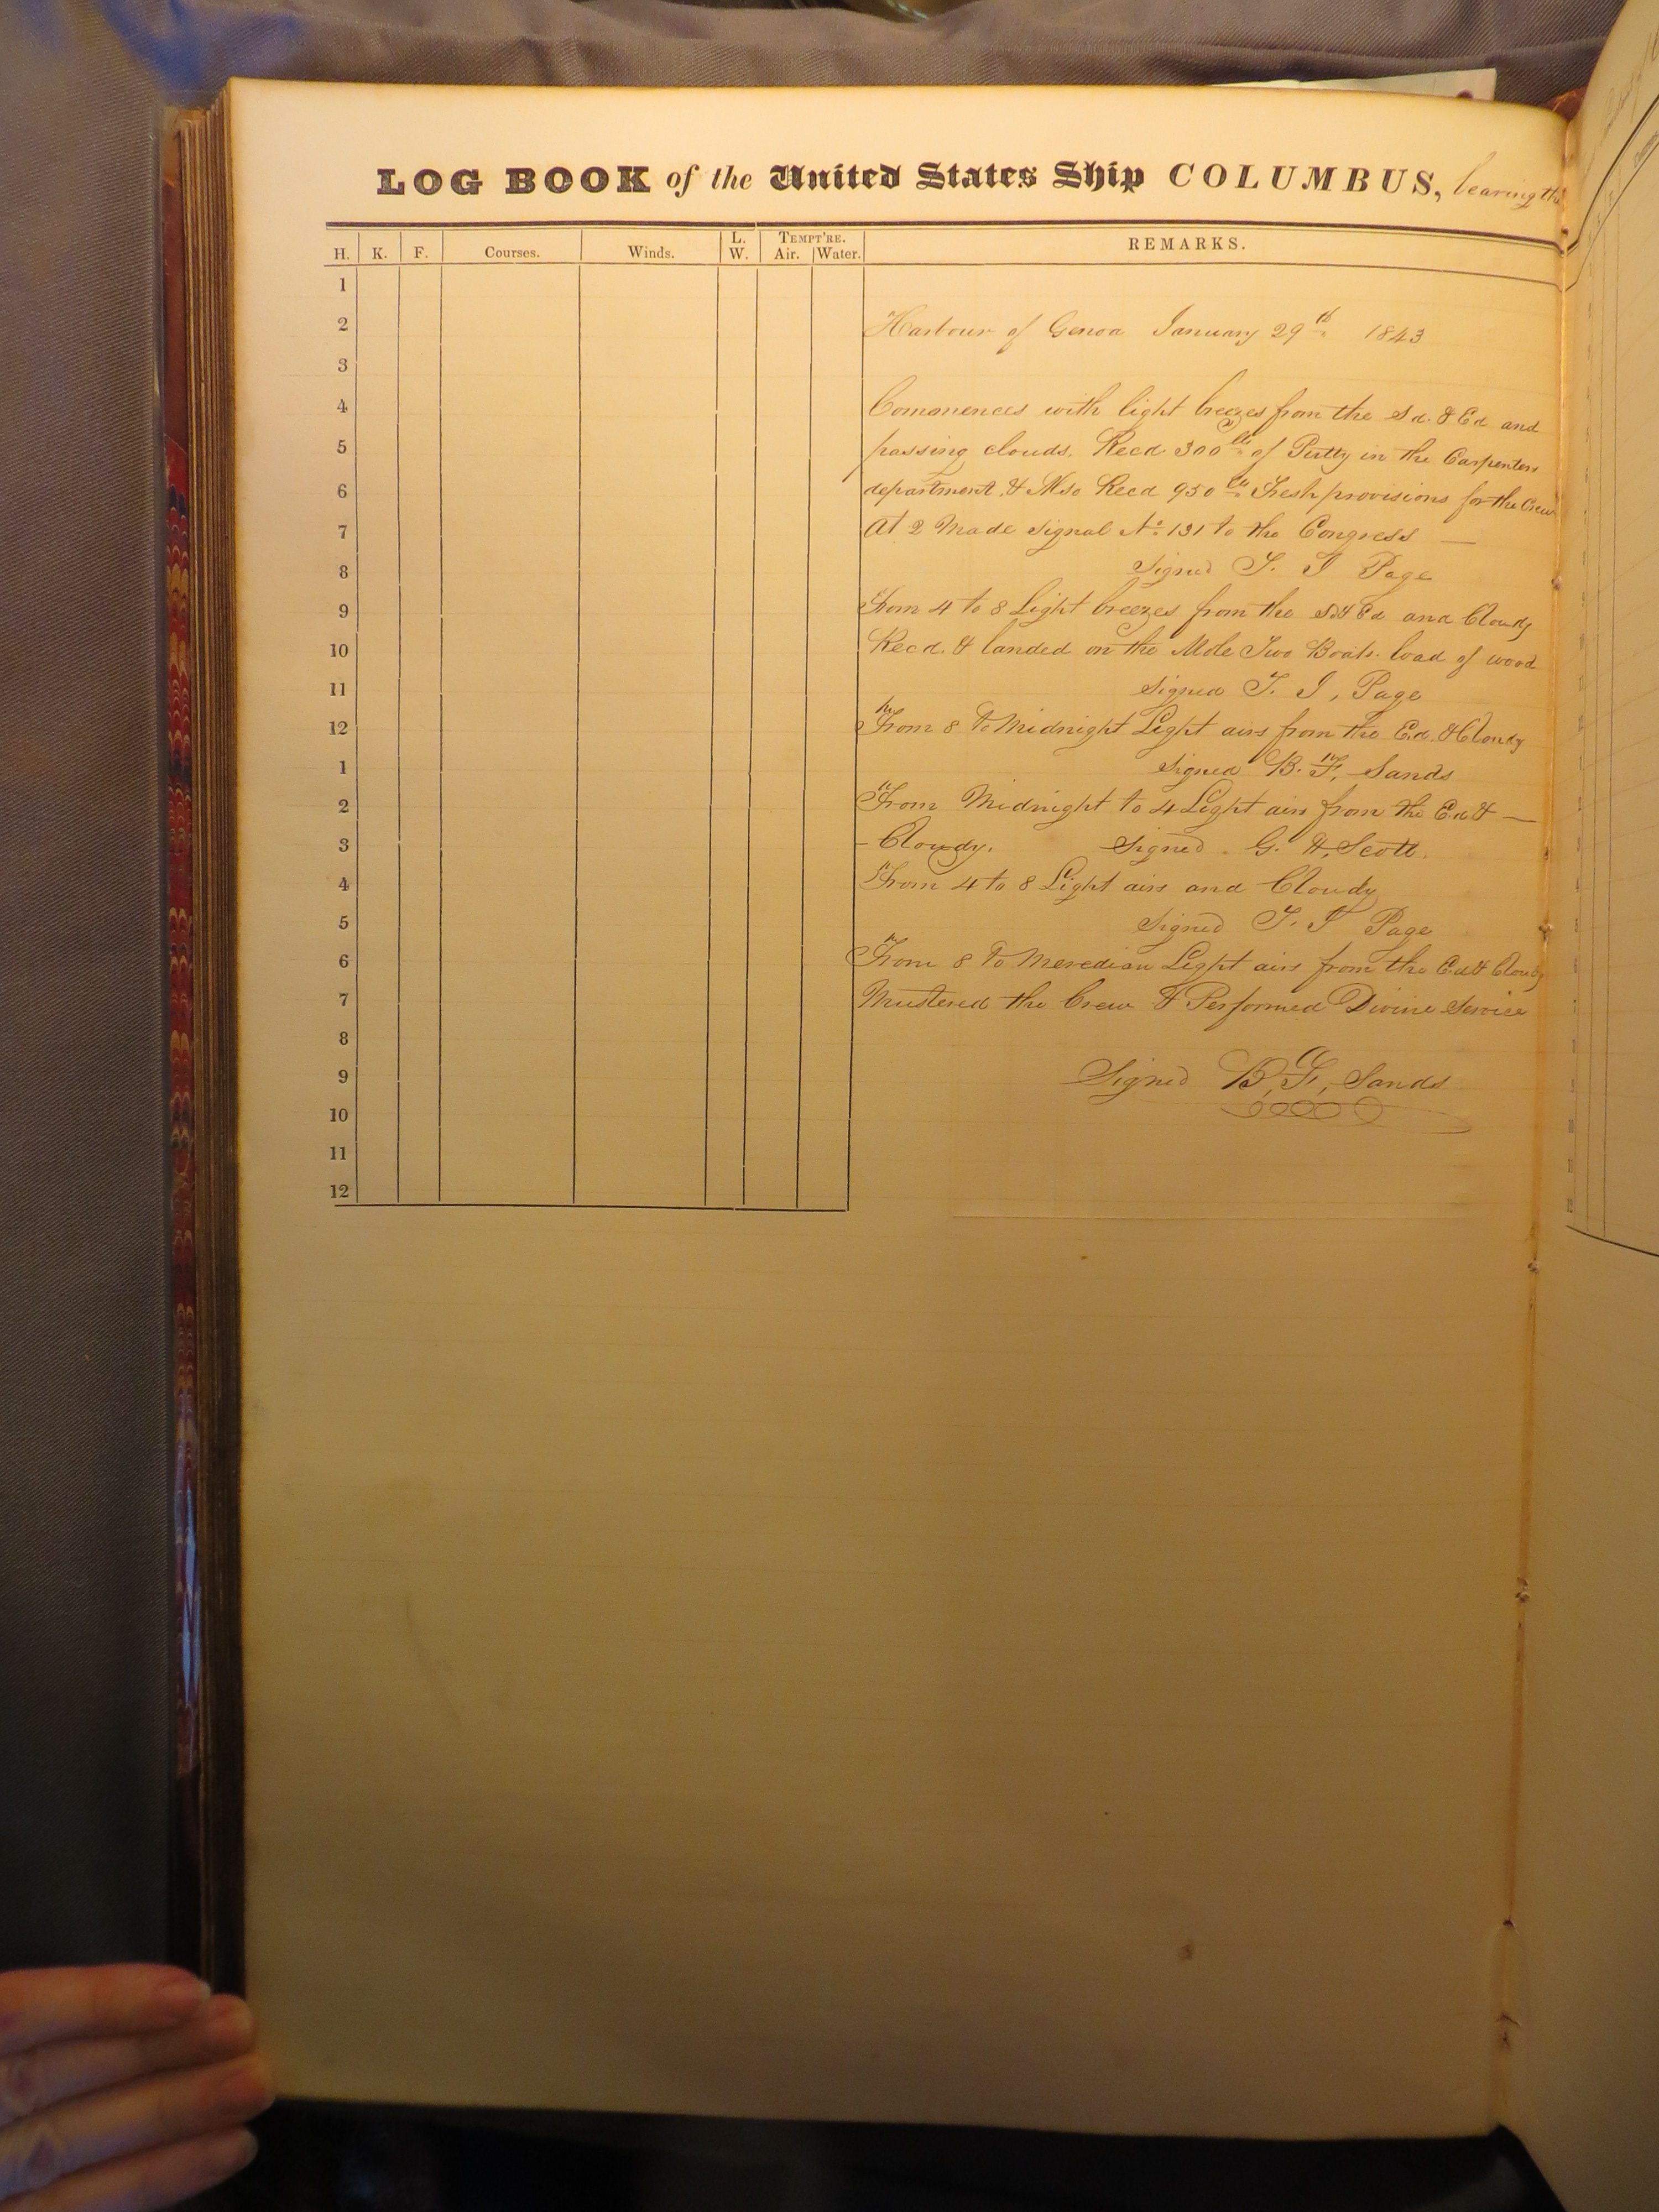 LOG BOOK of the United States Ship COLUMBUS, bearing the
H. K. F. Courses. Winds. L. W. TEMPT'RE. Air. Water. REMARKS.
1
2 Harbour of Genoa January 29th 1843
3
4 Commences with light breezes from the Sd. & Ed and
5 passing clouds. Recd 300 lbs of Putty in the Carpenters
6 department. & Also Recd 950 lbs Fresh provisions for the Crew
7 At 2 Made Signal No. 131 to the Congress —
8 Signed T. J Page
9 From 4 to 8 Light breezes from the Sd & Ed and Cloudy
10 Recd. & landed on the Mole Two Boats load of wood
11 Signed T. J, Page
12 From 8 to Midnight Light airs from the Ed. & Cloudy
1 Signed B. F, Sands
2 From Midnight to 4 Light airs from the Ed & —
3 - Cloudy. Signed G. H, Scott.
4 From 4 to 8 Light airs and Cloudy
5 Signed T. J Page
6 From 8 to Meredian Light airs from the Ed & Cloudy
7 Mustered the Crew & Performed Divine Service
8
9 Signed B, F, Sands
10
11
12